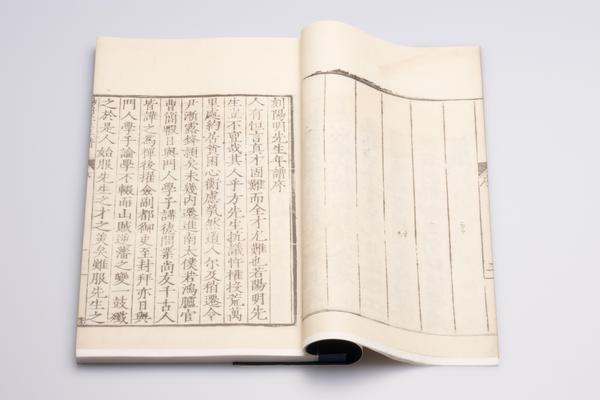 刻陽明先生年譜序
人有恒言真才固難而全才尤難也若陽明先
生豈不亶哉其人乎方先生抗議忤權投荒萬
里處約居貧困心衡慮煢然道人尔及稍遷令
尹漸露鋒穎矣未幾內遷進南太僕若鴻臚官
曹簡暇日與門人學子講德問業尚友千古人
皆譁之為禪後擢僉副都御史至封拜亦日與
門人學子論學不輟而山賊逆藩之變一鼓殲
之於是人始服先生之才之美矣雖服先生之